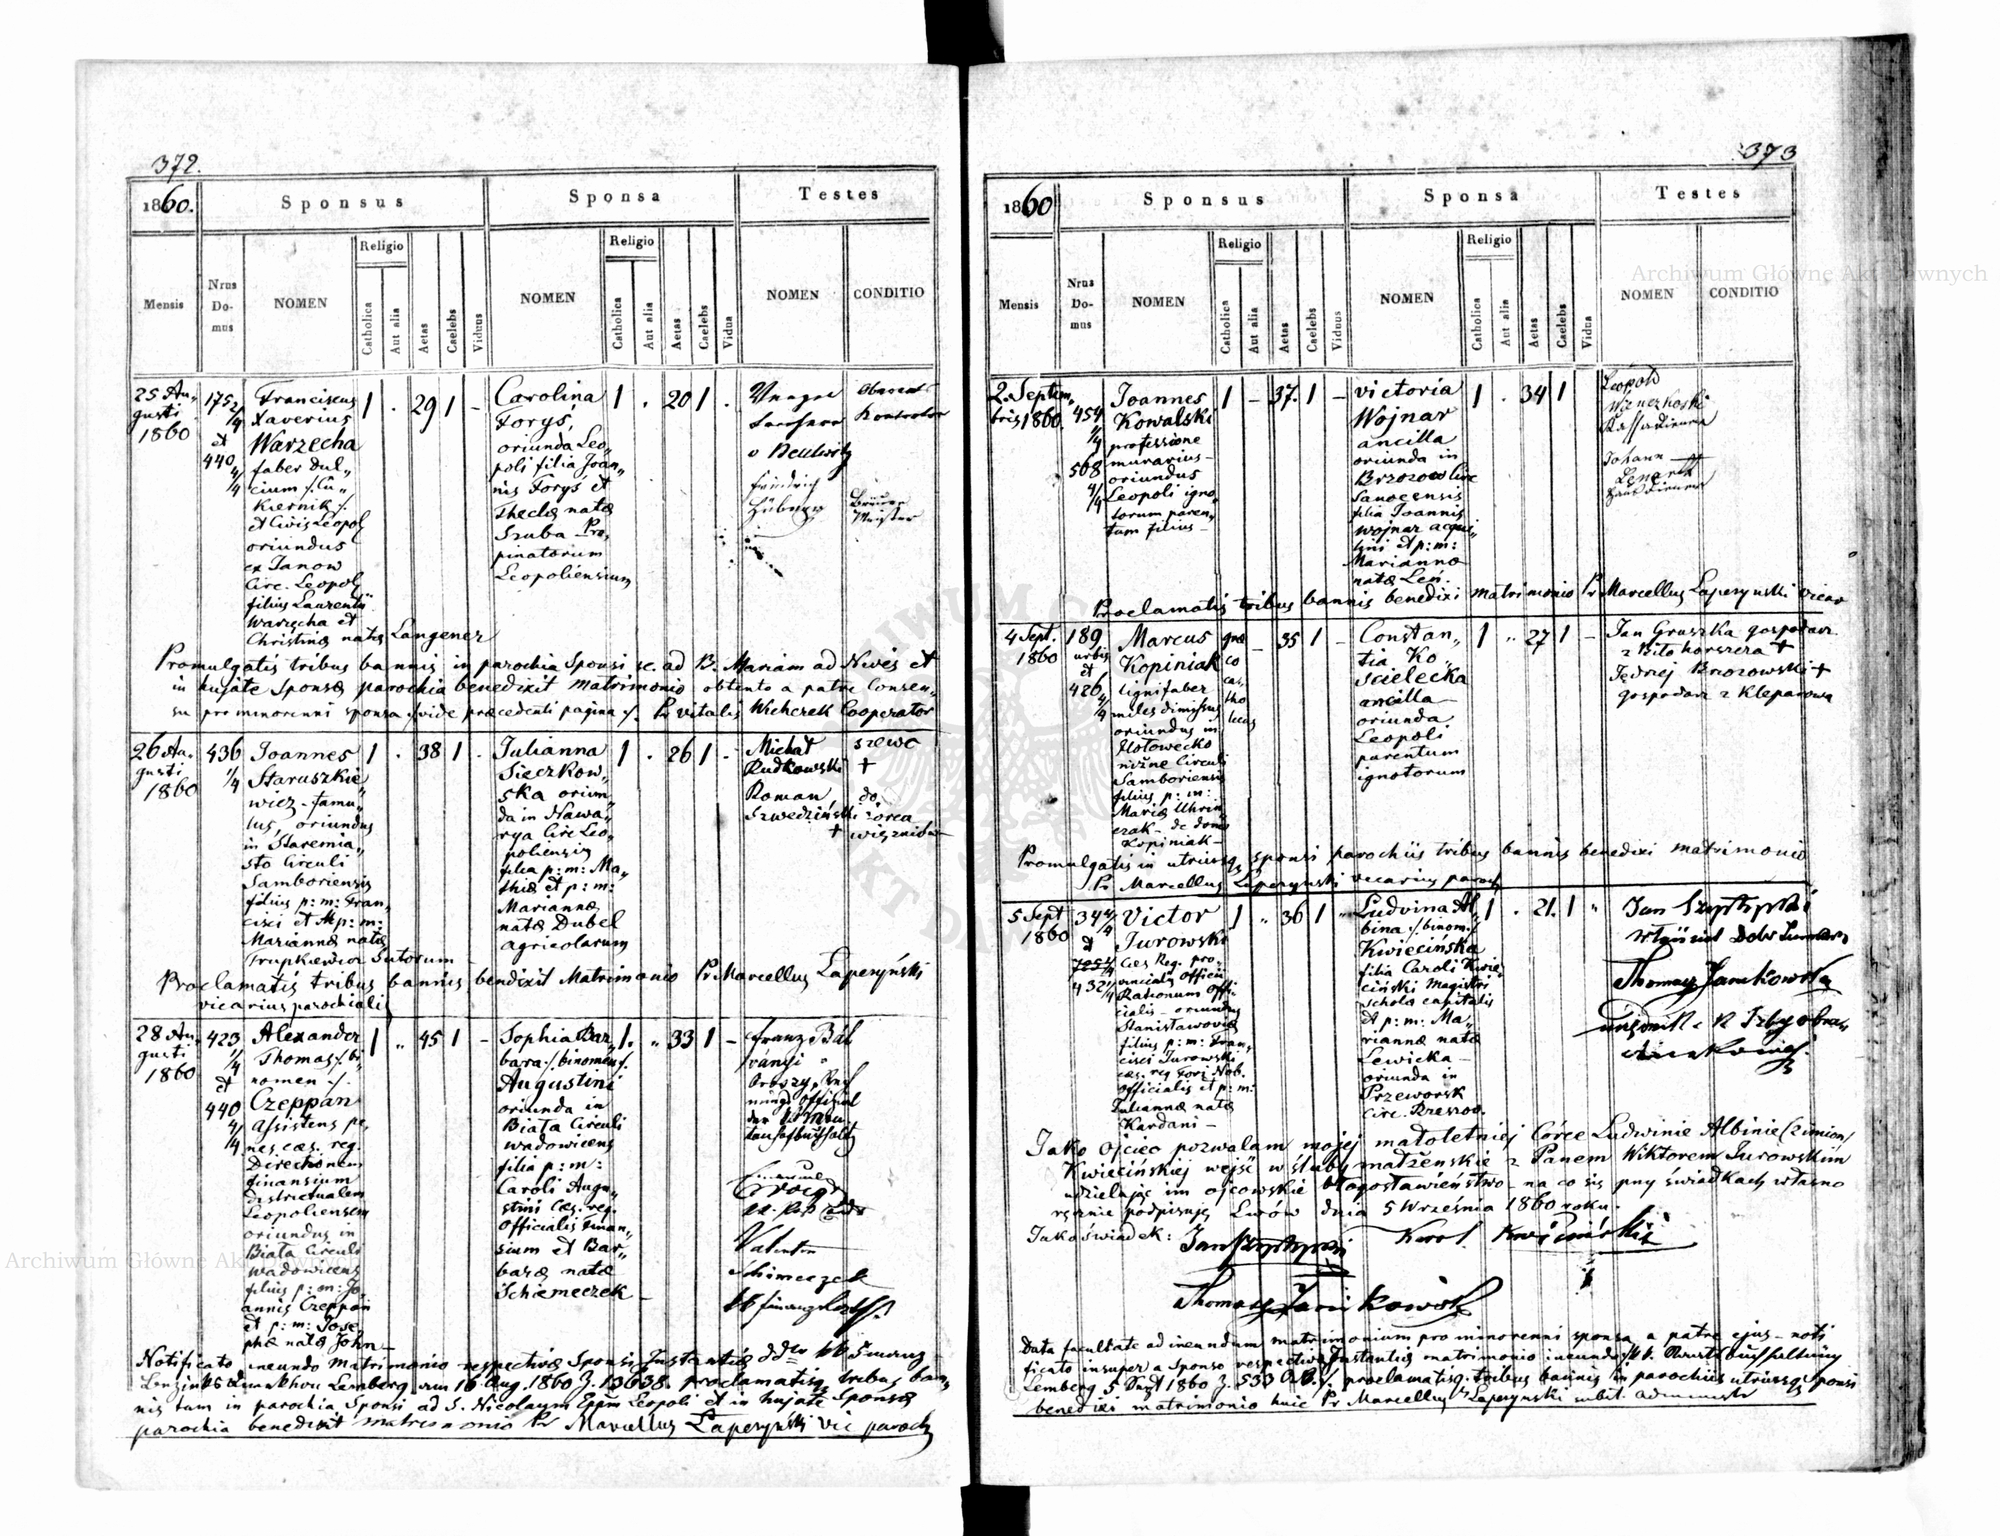 372.
1860.
Sponsus
Sponsa
Testes
Mensis
Nrus Do- mus
NOMEN
Religio
Catholica
Aut alia
Aetas
Caelebs
Viduus
NOMEN
Religio
Catholica
Aut alia
Aetas
Caelebs
Vidua
NOMEN
CONDITIO
25 Au„
gusti
1860
175 2/4
et
440 4/4
Franciscus
Xaverius
Warzecha
faber dul„
cium /: Cu„
kiernik :/
et Civis Leopol
oriundus
ex Janow
Circ. Leopol
filius Laurentii
Warzecha et
Christinæ natæ Langener
1 . 29 1 -
Carolina
Foryś,
oriunda Leo„
poli filia Joan„
nis Foryś et
Theclæ natæ
Szuba Pro„
pinatorum
Leopoliensium
1 . 20 1 .
Friedrich
Hübner
Bräuer
Meister
Promulgatis tribus bannis in parochia Sponsi sc. ad B. Mariam ad Nives et
in hujate Sponsæ parochia benedixit Matrimonio obtento a patre Consen„
su pro minorenni sponsa /: vide præcedenti pagina :/. Pr Vitalis Wichczek Cooperator
26 Au„
gusti
1860
436 1/4
Joannes
Staruszkie„
wicz - famu„
lus, oriundus
in Staremia„
sto Circuli
Samboriensis
filius p: m: Fran„
cisci et p: m:
Mariannæ natæ
Trupkiewicz Sutorum
1 . 38 1 -
Julianna
Sieczkow„
ska oriun„
da in Nawa„
rya Circ Leo„
poliensis
filia p: m: Ma„
thiæ et p: m:
Mariannæ
natæ Dubel
agricolarum
1 . 26 1 -
Michał
Rudkowski
Roman
Szwedziński
+
szewc
+
do„
zorca
więzniów
Proclamatis tribus bannis bendixit Matrimonio Pr Marcellus Łapczyński
vicarius parochialis
28 Au„
gusti
1860
423 1/4
et
440 4/4
Alexander
Thomas /: bi„
nomen :/.
Czeppan
Assistens pe„
nes cæs. reg.
Directionem
finansium
districtualem
Leopoliensem
oriundus in
Biała Circuli
Wadowicens
filius p: m: Jo„
annis Czeppan
et p: m: Jose„
phæ natæ John -
1 „ 45 1 -
Sophia Bar„
bara /: binomen :/.
Augustini
oriunda in
Biała Circuli
wadowicens
filia p: m:
Caroli Augu„
stini Cæs. reg.
Officialis Finan„
sium et Bar„
baræ natæ
Schemeczek -
1. „ 33 1 -
Franz Bál
ványi
Valentin
Schimeczek
Notificato ineundo Matrimonio respectivæ Sponsi Instantiæ
Lemberg am 16 Aug. 1860 Z. 13638. proclamatisq tribus ban„
nis tam in parochia Sponsi ad S. Nicolaum Eppm Leopoli et in hujate Sponsæ
parochia benedixit matrimonio Pr Marcellus Łapczyński vic paroch
373
1860
Sponsus
Sponsa
Testes
Mensis
Nrus Do- mus
NOMEN
Religio
Catholica
Aut alia
Aetas
Caelebs
Viduus
NOMEN
Religio
Catholica
Aut alia
Aetas
Caelebs
Vidua
NOMEN
CONDITIO
2. Septem„
bris 1860
454 1/4
568 4/4
Joannes
Kowalski
professione
murarius -
oriundus
Leopoli igno„
torum paren„
tum filius -
1 - 37. 1 -
Victoria
Wojnar
ancilla
oriunda in
Brzozow Circ
Sanocensis
filia Joannis
Wojnar
et p: m:
Mariannæ
natæ Leń.
1 . 34 1
Leopold
Johann
Lenart
Proclamatis tribus bannis benedixi matrimonio Pr Marcellus Łapczynski vicar
4 Sept.
1860
189
urbis
et
426 4/4
Marcus
Kopiniak
lignifaber
miles dimissus
oriundus in
Samboriensis
filius p: m:
Mariæ
de domo
Kopiniak -
græ
co
ca„
tho
licus
- 35 1 -
Constan„
tia Ko„
scielecka
ancilla -
oriunda
Leopoli
parentum
ignotorum
1 „ 27 1 -
Jan Gruszka gospodarz
z Bilohorszcza +
Jędrzej Brzozowski +
gospodarz z Kleparowa
Promulgatis in utriusq sponsi parochiis tribus bannis benedixi matrimonio
Pr Marcellus Łapczynski vicarius paroch
5 Sept
1860
344 4/4
et
432 1/4
Victor
Jurowski
Cæs Reg. pro„
vincialis Officii
Rationum Offi„
cialis - oriundus
Stanisławowiæ
filius p: m: Fran„
cisci Jurowski
cæs. reg Fori Nob.
Officialis et p: m:
Juliannæ natæ
Kardani -
1 „ 36 1 „
Ludvina Al„
bina /: binom :/
Kwiecińska
filia Caroli Kwie„
ciński Magistri
scholæ capitalis
et p: m: Ma„
riannæ natæ
Lewicka -
oriunda in
Przeworsk
Circ. Rzeszow.
1 . 21. 1 „
Thomasz Janikowski
Jako Ojciec pozwalam mojej małoletniej Córce Ludwinie Albinie (2 imion)
Kwiecińskiej wejść w śluby małżeńskie z Panem Wiktorem Jurowskim
udzielając im ojcowskie błogosławieństwo - na co się przy świadkach własno
ręcznie podpisuję Lwów dnia 5 Września 1860 roku.
Jako świadek:
Karol Kwieciński
Thomasz Janikowski
Data facultate ad ineundum matrimonium pro minorenni sponsa a patre ejus - noti
ficato insuper a Sponso respectivæ Instantiæ matrimonio ineundo
Lemberg 5. Sept 1860 Z. 533 proclamatisq. tribus bannis in parochiis utriusq sponsi
benedixi matrimonio huic Pr Marcellus Łapczynski
Archiwum Główne Akt Dawnych
Archiwum Główne Akt Dawnych